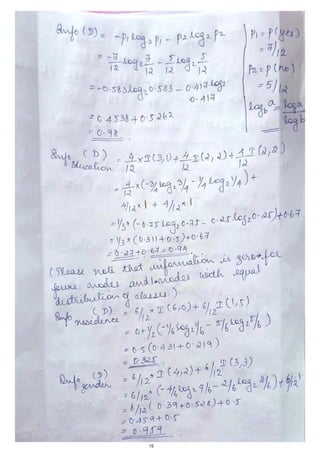 Info (D) = -P1 log2 P1 - P2 log2 P2
= -7/12 log2 7/12 - 5/12 log2 5/12
= -0.583 log2 0.583 - 0.417 log2 0.417
= 0.4538 + 0.5262
= 0.98
P1 = P(yes)
= 7/12
P2 = P(no)
= 5/12
log_b a = log a / log b
Info Education (D) = 4/12 × I(3,1) + 4/12 I(2,2) + 4/12 I(2,2)
= 4/12 × (-3/4 log2 3/4 - 1/4 log2 1/4) +
4/12 × 1 + 4/12 × 1
= 1/3 × (-0.75 log2 0.75 - 0.25 log2 0.25) + 0.67
= 1/3 × (0.311 + 0.5) + 0.67
= 0.27 + 0.67 = 0.94
(Please note that information is zero for
pure nodes and 1 nodes with equal
distribution of classes.)
Info residence (D) = 6/12 × I(6,0) + 6/12 I(1,5)
= 0 + 1/2 (-1/6 log2 1/6 - 5/6 log2 5/6)
= 0.5 (0.431 + 0.219)
= 0.325
Info gender (D) = 6/12 × I(4,2) + 6/12 I(3,3)
= 6/12 × (-4/6 log2 4/6 - 2/6 log2 2/6) + 6/12
= 6/12 (0.39 + 0.528) + 0.5
= 0.459 + 0.5
= 0.959